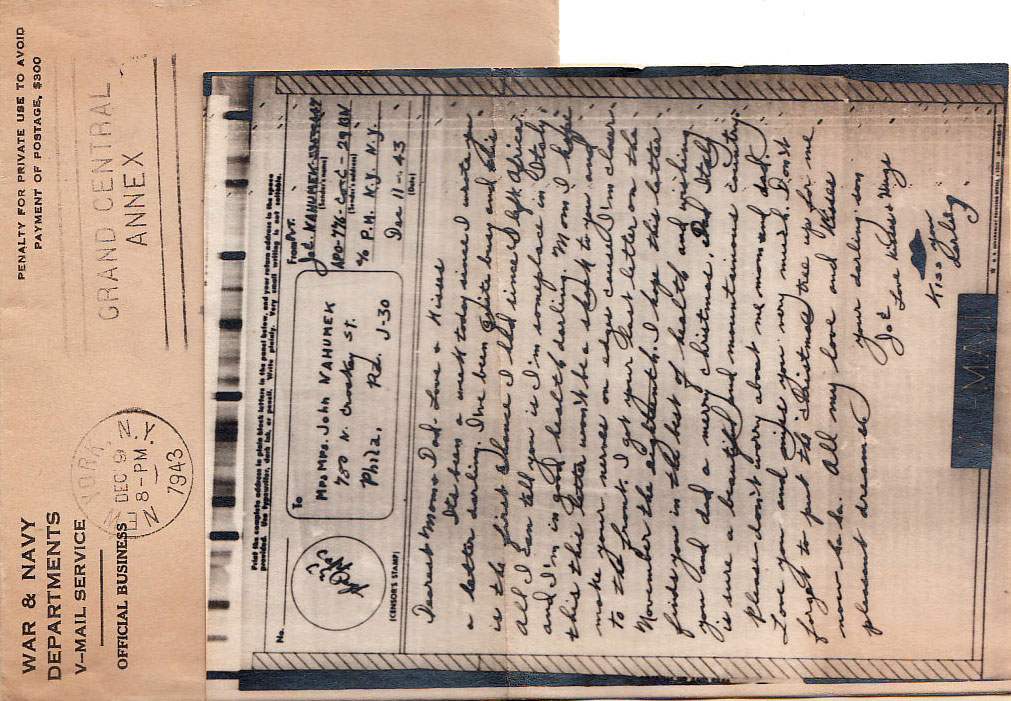 WAR & NAVY
DEPARTMENTS
V-MAIL SERVICE
OFFICIAL BUSINESS
PENALTY FOR PRIVATE USE TO AVOID
PAYMENT OF POSTAGE, $300
YORK, N.
DEC 9
8-PM
N.Y.
1943
GRAND CENTRAL
ANNEX
Print the complete address in plain block letters in the panel below, and your return address in the space
provided. Use typewriter, dark ink, or pencil. Write plainly. Very small writing is not suitable.
No.
(CENSOR'S STAMP)
To
Mr & Mrs. John VAHUMEK
780 N. Croskey St.
Phila, Pa. J-30
From Pvt.
Joe VAHUMEK
(Sender's name)
APO-776-Co C-29 BN
(Sender's address)
% P.M. N.Y. N.Y.
Dec 11-43
(Date)
Dearest Mom & Dad - Love & Kisses
Its been a week today since I wrote you
a letter darling. I've been quite busy and this
is the first chance I had since I left Africa.
All I can tell you is I'm someplace in Italy
and I'm in good health darling. Mom I hope
this this letter won't be a shock to you and
make your nerves on edge cause I'm closer
to the front. I got your last letter on the
November the eighteenth. I hope this letter
finds you in the best of health and wishing
you and dad a merry christmas. Dad Italy
is sure a beautiful and mountainous country.
Please don't worry about me mom and dad.
Love you and miss you very much. Don't
forget to put the christmas tree up for me.
mom ha ha. All my love and kisses
pleasant dreams
your darling son
Joe Love Kisses & Hugs
Kiss you
Darling
V-MAIL